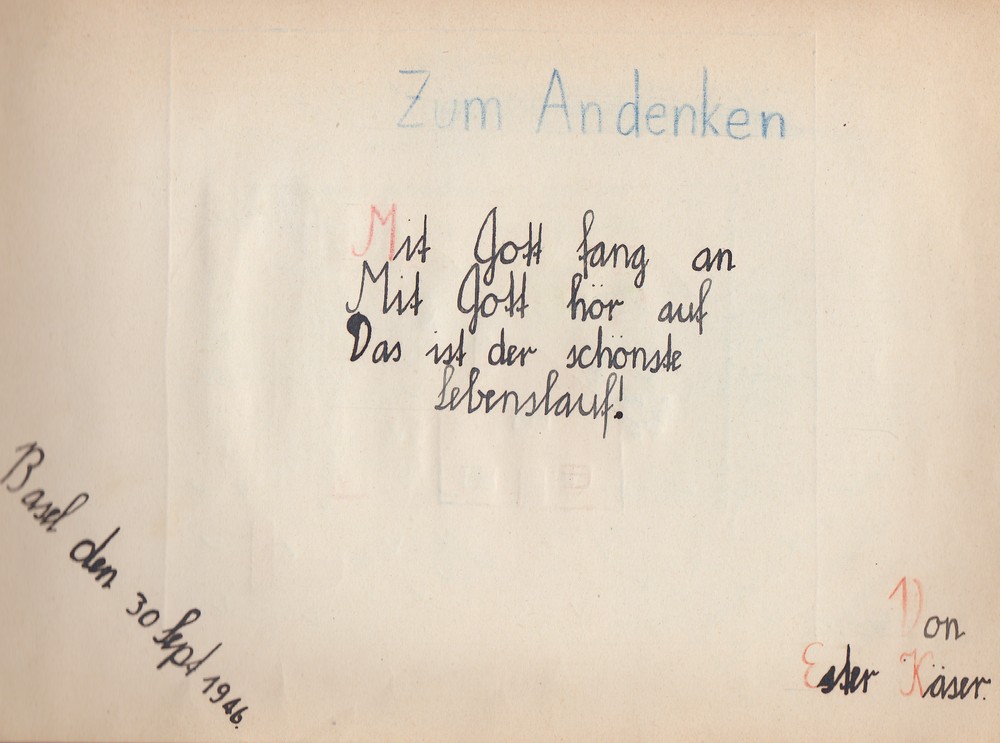 Zum Andenken
Mit Gott fang an
Mit Gott hör auf
Das ist der schönste
Lebenslauf!
Basel den 30 Sept 1946.
Von
Ester Käser.